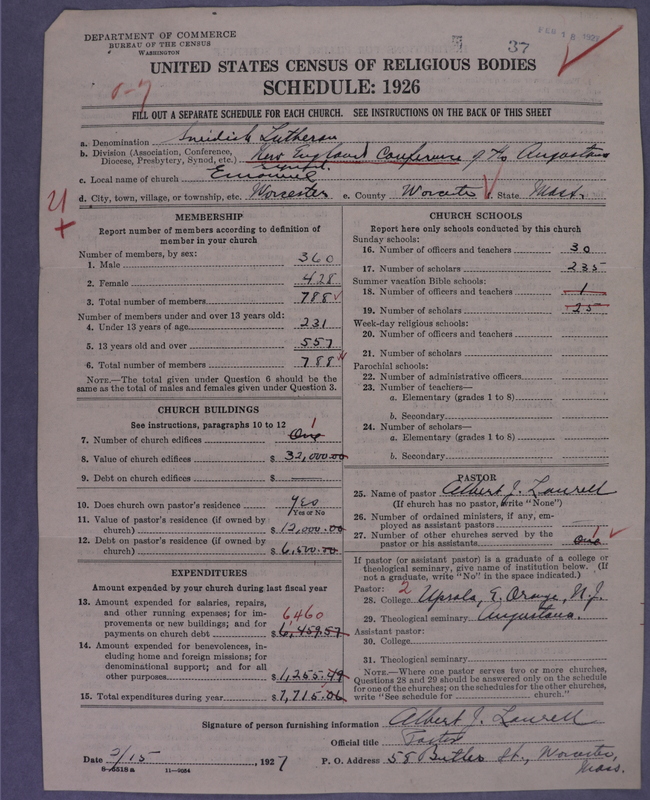 DEPARTMENT OF COMMERCE
BUREAU OF THE CENSUS
WASHINGTON
37
FEB 18 1927
UNITED STATES CENSUS OF RELIGIOUS BODIES
SCHEDULE: 1926
FILL OUT A SEPARATE SCHEDULE FOR EACH CHURCH. SEE INSTRUCTIONS ON THE BACK OF THIS SHEET
a. Denomination Swedish Lutheran
b. Division (Association, Conference, Diocese, Presbytery, Synod, etc.) New England Conference of the Augustana Synod.
c. Local name of church Emanuel
d. City, town, village, or township, etc. Worcester e. County Worcester f. State Mass.
MEMBERSHIP
Report number of members according to definition of member in your church
Number of members, by sex:
1. Male 360
2. Female 428
3. Total number of members 788
Number of members under and over 13 years old:
4. Under 13 years of age 231
5. 13 years old and over 557
6. Total number of members 788
NOTE.—The total given under Question 6 should be the same as the total of males and females given under Question 3.
CHURCH BUILDINGS
See instructions, paragraphs 10 to 12
7. Number of church edifices One 1
8. Value of church edifices $ 32,000.00
9. Debt on church edifices $
10. Does church own pastor's residence yes
Yes or No
11. Value of pastor's residence (if owned by church) $ 12,000.00
12. Debt on pastor's residence (if owned by church) $ 6,500.00
EXPENDITURES
Amount expended by your church during last fiscal year
13. Amount expended for salaries, repairs, and other running expenses; for improvements or new buildings; and for payments on church debt $ 6,459.57 6460
14. Amount expended for benevolences, including home and foreign missions; for denominational support; and for all other purposes $ 1,255.49
15. Total expenditures during year $ 7,715.06
CHURCH SCHOOLS
Report here only schools conducted by this church
Sunday schools:
16. Number of officers and teachers 30
17. Number of scholars 235
Summer vacation Bible schools:
18. Number of officers and teachers 1
19. Number of scholars 25
Week-day religious schools:
20. Number of officers and teachers
21. Number of scholars
Parochial schools:
22. Number of administrative officers
23. Number of teachers—
a. Elementary (grades 1 to 8)
b. Secondary
24. Number of scholars—
a. Elementary (grades 1 to 8)
b. Secondary
PASTOR
25. Name of pastor Albert J. Laurell
(If church has no pastor, write "None")
26. Number of ordained ministers, if any, employed as assistant pastors
27. Number of other churches served by the pastor or his assistants One 1
If pastor (or assistant pastor) is a graduate of a college or theological seminary, give name of institution below. (If not a graduate, write "No" in the space indicated.)
Pastor: 2
28. College Upsala, E. Orange, N.J.
29. Theological seminary Augustana.
Assistant pastor:
30. College
31. Theological seminary
NOTE.—Where one pastor serves two or more churches, Questions 28 and 29 should be answered only on the schedule for one of the churches; on the schedules for the other churches, write "See schedule for church."
Signature of person furnishing information Albert J. Laurell
Official title Pastor
Date 2/15, 1927 P. O. Address 58 Butler St., Worcester, Mass.
8-5518a 11-9084